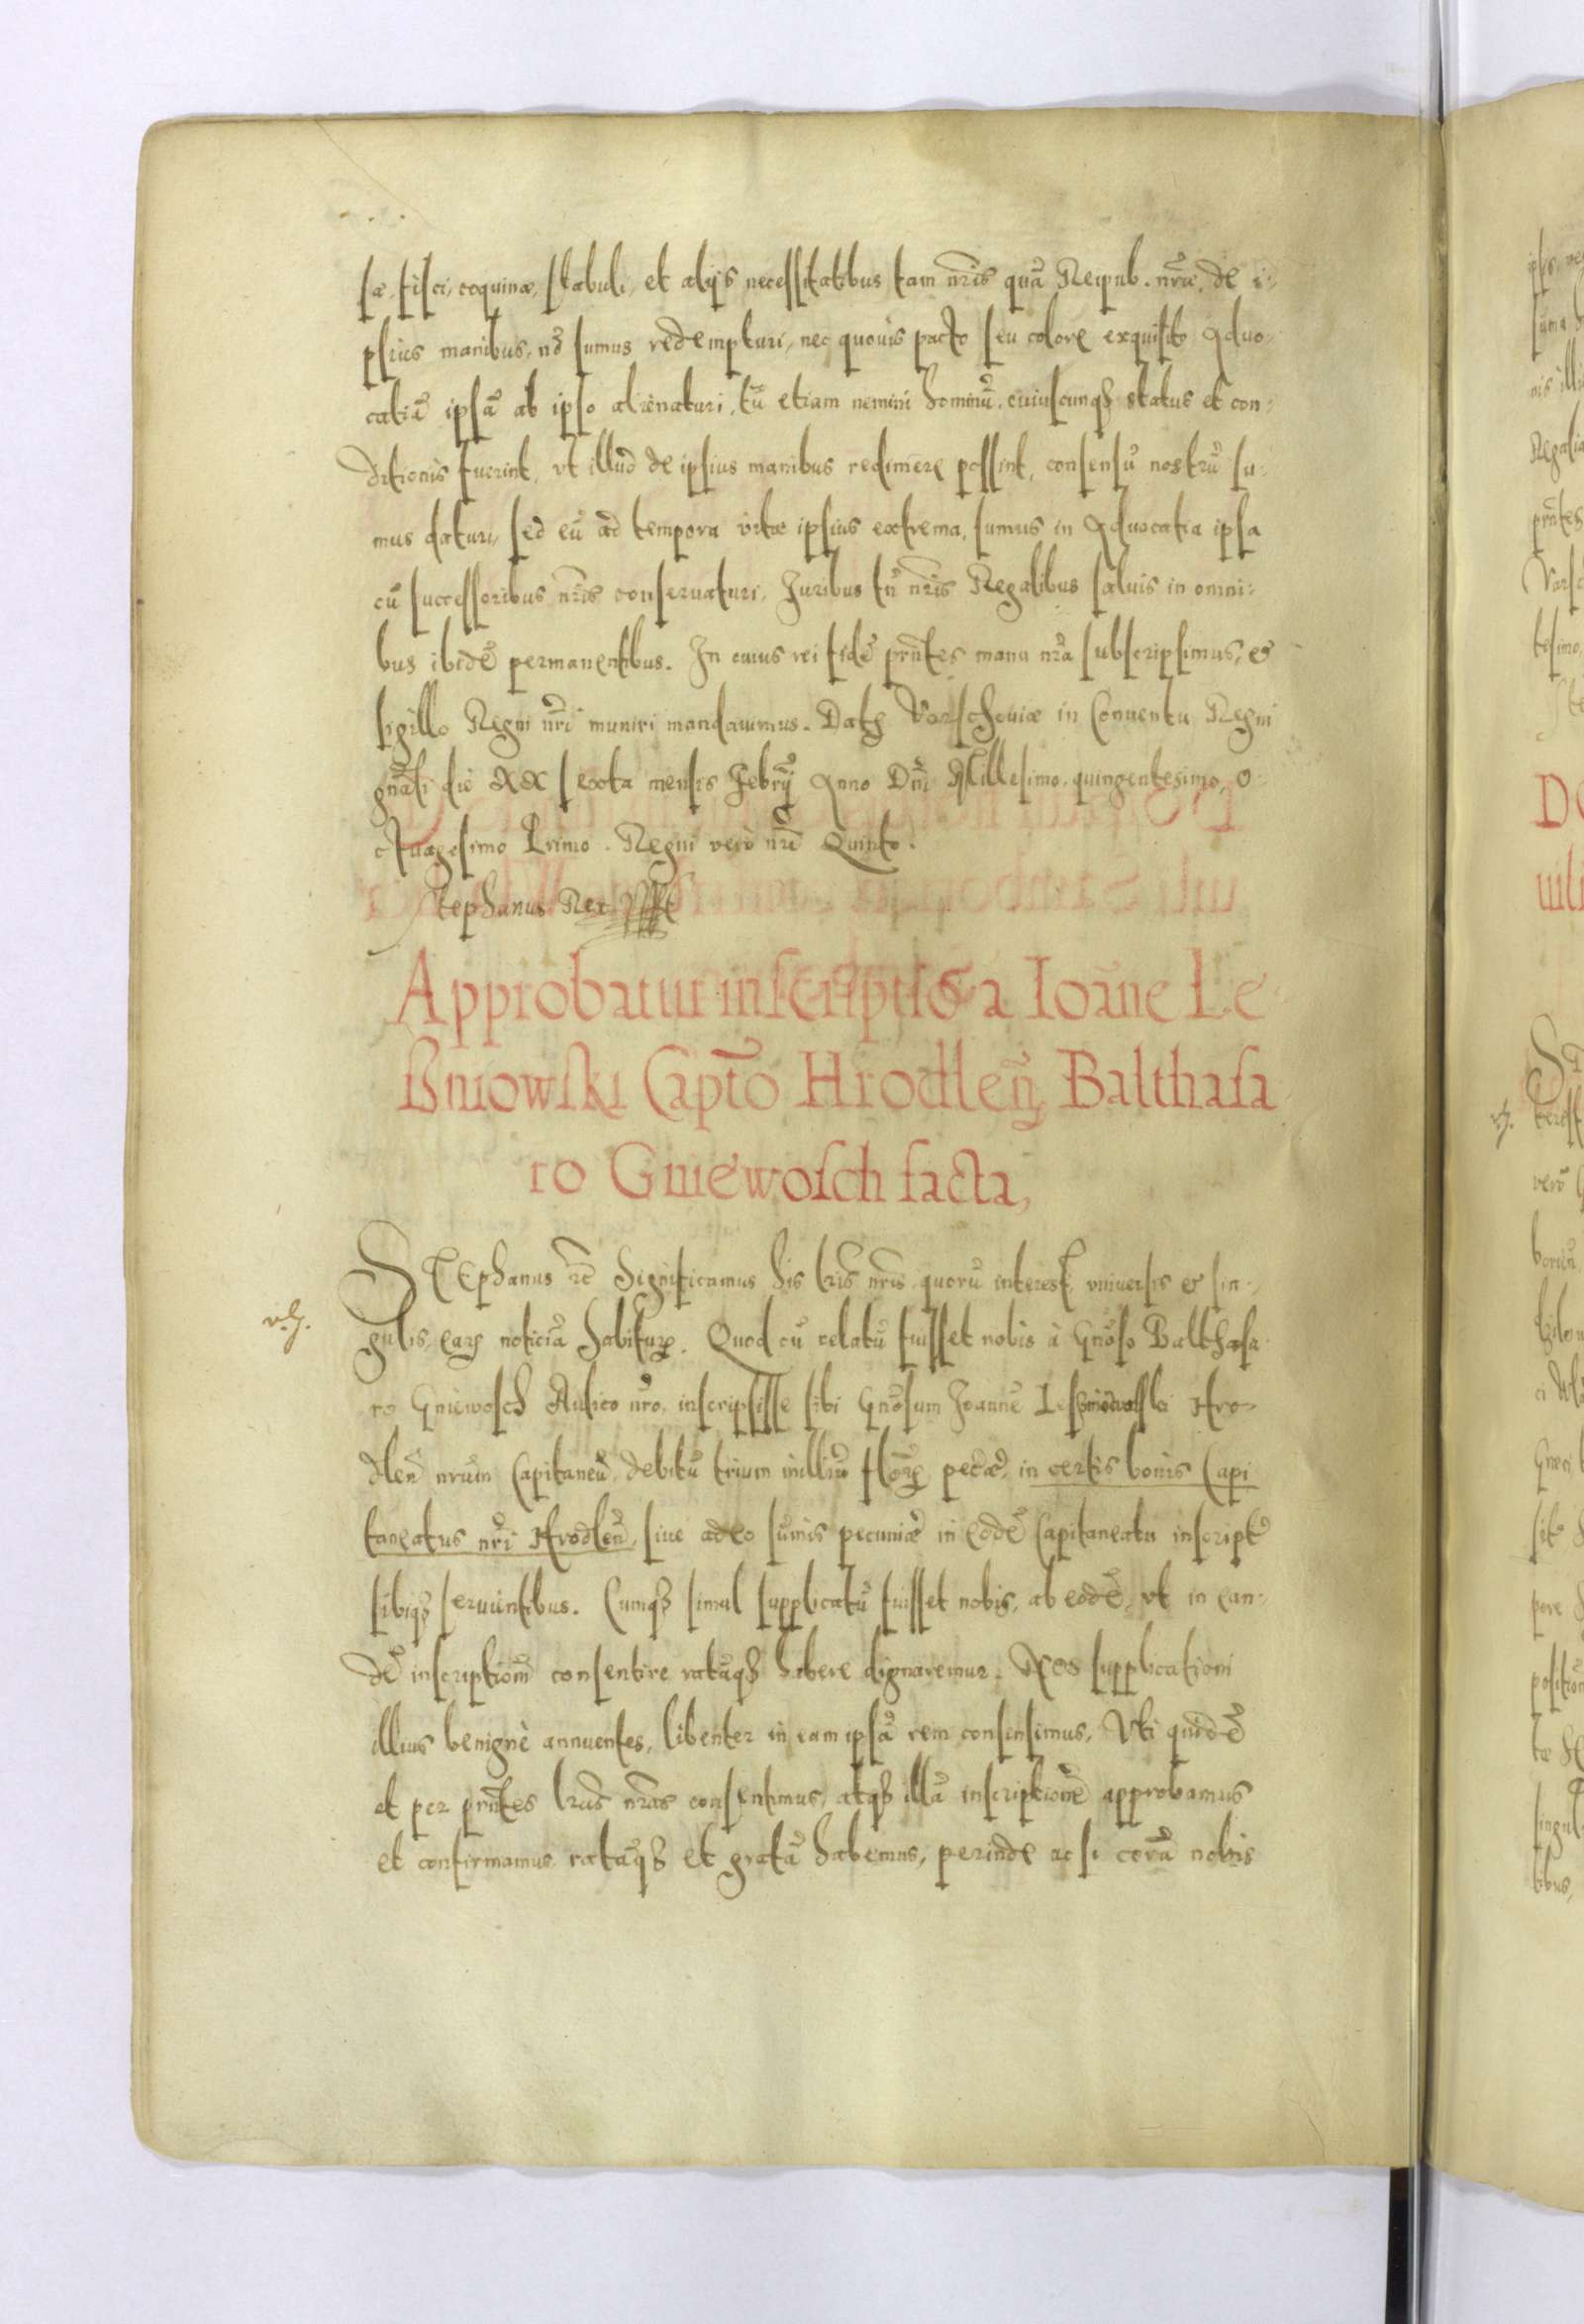 sæ, fisci, coquinæ, stabuli, et alijs necessitatibus tam nr̃is quã Reipub. nr̃æ, de i-
psius manibus, nõ sumus redempturi, nec quouis pacto seu colore exquisito Aduo-
catiã ipsã ab ipso alienaturi, tũ etiam nemini hominũ, cuiuscunqꝫ status et con-
ditionis fuerint, vt illud de ipsius manibus redimere possint, consensũ nostrũ su-
mus daturi, sed eũ ad tempora vitæ ipsius extrema, sumus in Aduocatia ipsa
cũ successoribus nr̃is conseruaturi, Juribus tñ nr̃is Regalibus saluis in omni-
bus ibidẽ permanentibus. In cuius rei fidẽ pñtes manu nr̃a subscripsimus, et
sigillo Regni nr̃i muniri mandauimus. Datꝫ Varscheuiæ in Conuentu Regni
gñali die XX sexta mensis Febrij Anno Dñi Millesimo quingentesimo, o-
ctuagesimo Primo. Regni vero nr̃i Quinto.
Stephanus Rex
Approbatur inscriptio a Ioãne Le
ßniowski Capt̃o Hrodleñ Balthasa
ro Gniewosch facta,
STEphanus etc̃ Significamus his lr̃is nr̃is quorũ interest, vniuersis et sin-
v.h.
gulis, earꝫ noticiã habituꝝ. Quod cũ relatũ fuisset nobis à Gnõso Balthasa
ro Gniewosch Aulico nr̃o, inscripsisse sibi Gnõsum Joannẽ Lesniowski Hro-
dleñ nrum Capitaneũ, debitũ trium milliũ floꝝ pecæ, in certis bonis Capi
taneatus nr̃i Hrodleñ, siue adeo sũmis pecuniæ in eodẽ Capitaneatu inscript̃
sibiqꝫ seruientibus. Cumqꝫ simul supplicatũ fuisset nobis, ab eodẽ, vt in ean-
dẽ inscriptionẽ consentire ratãqꝫ habere dignaremur. Nos supplicationi
illius benignè annuentes, libenter in eam ipsã rem consensimus, Vti quidẽ
et per pñtes lr̃as nr̃as consentimus, atqꝫ illã inscriptionẽ approbamus
et confirmamus, ratãqꝫ et gratã habemus, perinde ac si corã nobis